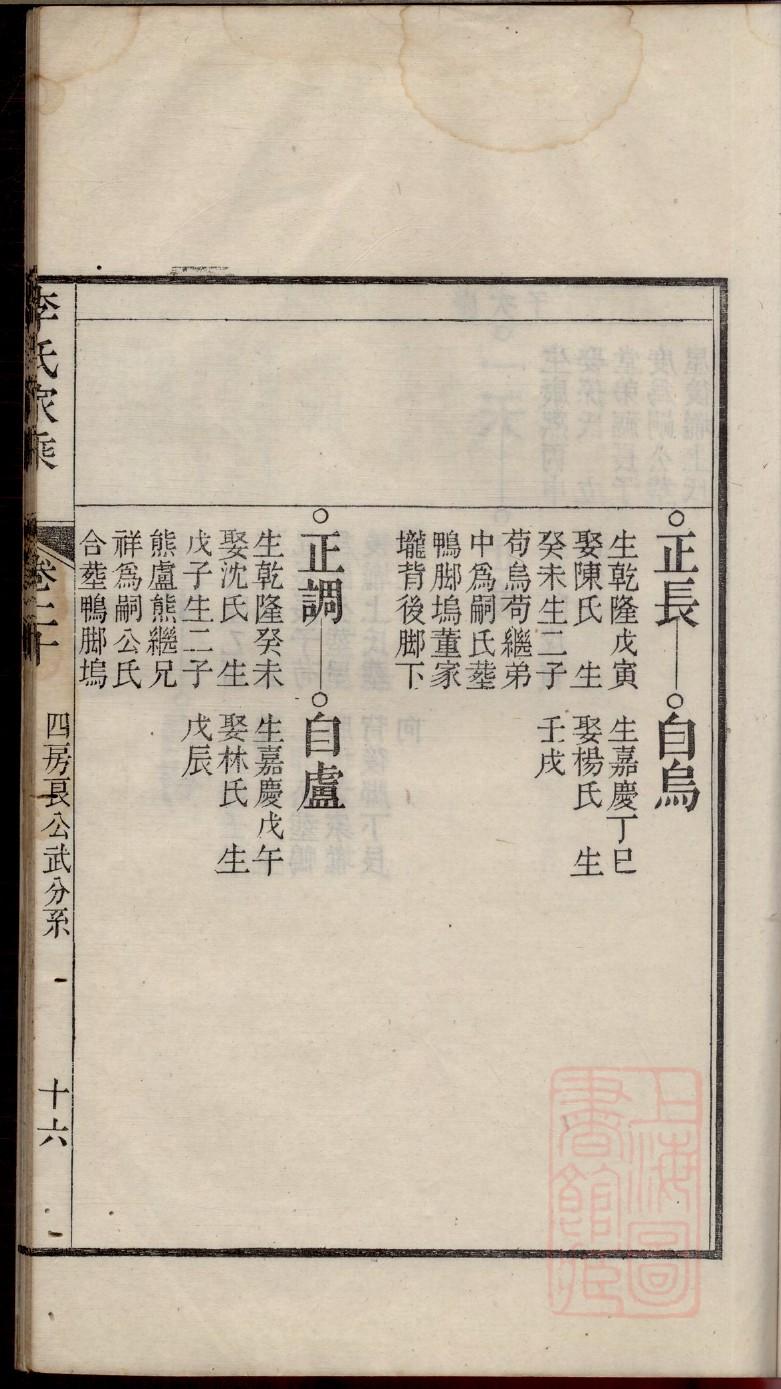 正長
生乾隆戊寅
娶陳氏 生
癸未生二子
苟烏苟繼弟
中爲嗣氏塟
鴨脚塢董家
壠背後脚下
自烏
生嘉慶丁巳
娶楊氏 生
壬戌
正調
生乾隆癸未
娶沈氏 生
戊子生二子
熊盧熊繼兄
祥爲嗣公氏
合塟鴨脚塢
自盧
生嘉慶戊午
娶林氏 生
戊辰
李氏家乘
卷二十
四房良公武分系
十六
上海圖
書館藏